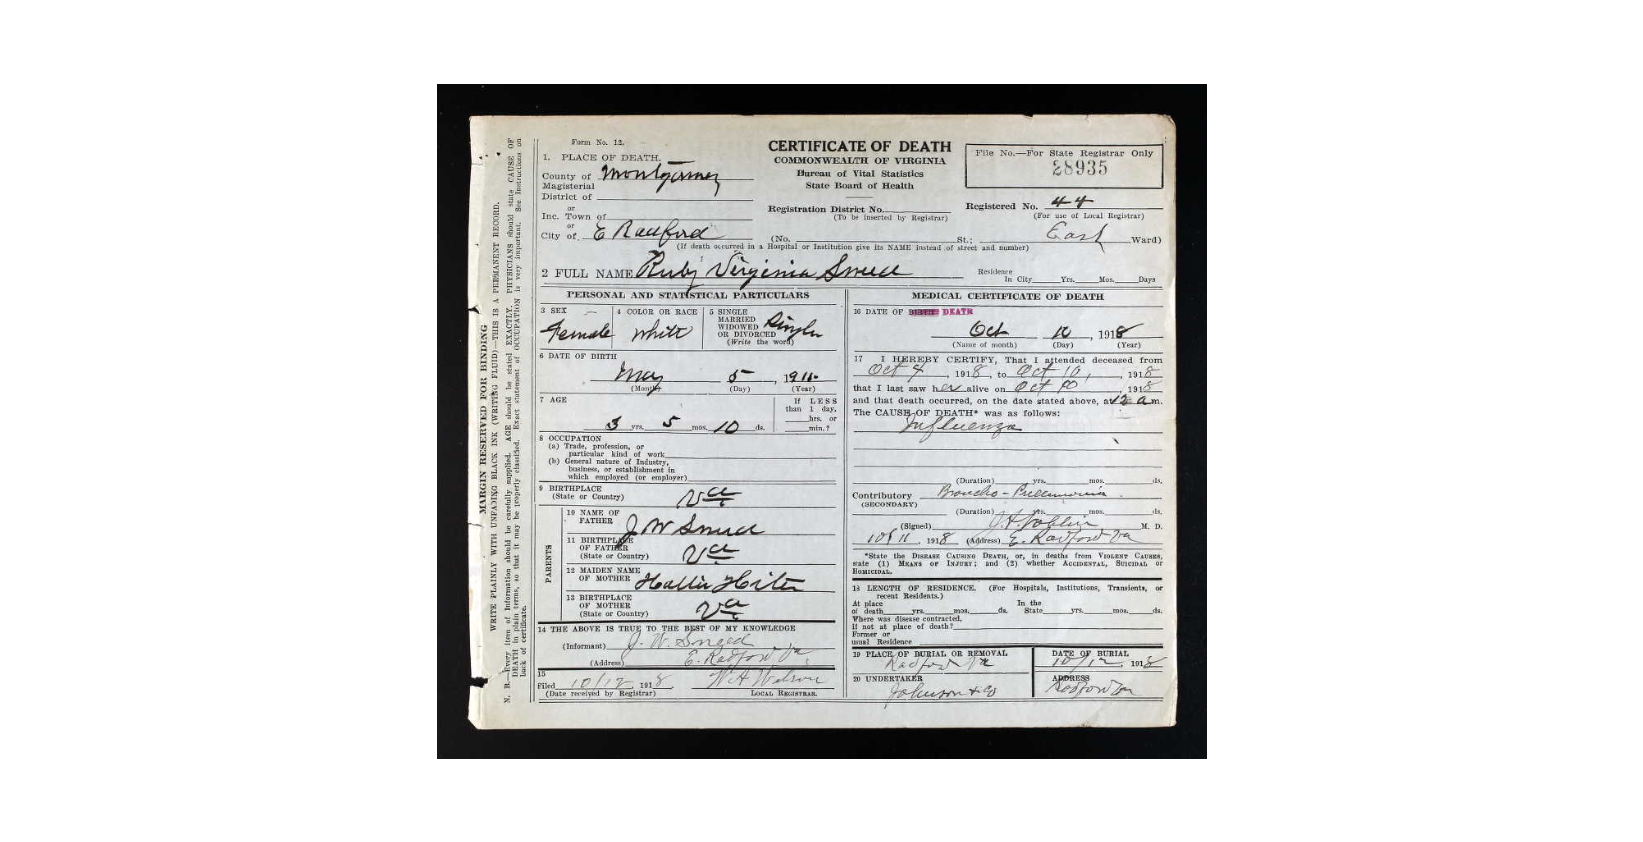 Form No. 12.
1. PLACE OF DEATH.
County of Montgomery
Magisterial
District of
or
Inc. Town of
or
City of E Radford
CERTIFICATE OF DEATH
COMMONWEALTH OF VIRGINIA
Bureau of Vital Statistics
State Board of Health
Registration District No.
(To be inserted by Registrar)
(No. St.; East Ward)
File No.—For State Registrar Only
28935
Registered No. 44
(For use of Local Registrar)
(If death occurred in a Hospital or Institution give its NAME instead of street and number)
2 FULL NAME Ruby Virginia Sneed
Residence
In City Yrs. Mos. Days
PERSONAL AND STATISTICAL PARTICULARS
3 SEX
Female
4 COLOR OR RACE
White
5 SINGLE
MARRIED
WIDOWED
OR DIVORCED
(Write the word)
Single
6 DATE OF BIRTH
May 5, 191
(Month) (Day) (Year)
7 AGE
3 yrs. 5 mos. 10 ds.
If LESS
than 1 day,
hrs. or
min.?
8 OCCUPATION
(a) Trade, profession, or
particular kind of work
(b) General nature of Industry,
business, or establishment in
which employed (or employer)
9 BIRTHPLACE
(State or Country) Va
PARENTS
10 NAME OF
FATHER J W Sneed
11 BIRTHPLACE
OF FATHER
(State or Country) Va
12 MAIDEN NAME
OF MOTHER Hallie Hite
13 BIRTHPLACE
OF MOTHER
(State or Country) Va
14 THE ABOVE IS TRUE TO THE BEST OF MY KNOWLEDGE
(Informant) J. W. Sneed
(Address) E. Radford Va,
15
Filed 10/12, 1918 W A Wilson
(Date received by Registrar) LOCAL REGISTRAR.
MEDICAL CERTIFICATE OF DEATH
16 DATE OF DEATH
Oct 10, 1918
(Name of month) (Day) (Year)
17 I HEREBY CERTIFY, That I attended deceased from
Oct 4, 1918, to Oct 10, 1918
that I last saw her alive on Oct 10 1918
and that death occurred, on the date stated above, at 12 a m.
The CAUSE OF DEATH* was as follows:
Influenza
(Duration) yrs. mos. ds.
Contributory Broncho-Pneumonia
(SECONDARY)
(Duration) yrs. mos. ds.
(Signed) M. D.
10/11 1918 (Address) E. Radford Va
*State the DISEASE CAUSING DEATH, or, in deaths from VIOLENT CAUSES,
state (1) MEANS OF INJURY; and (2) whether ACCIDENTAL, SUICIDAL or
HOMICIDAL.
18 LENGTH OF RESIDENCE. (For Hospitals, Institutions, Transients, or
recent Residents.)
At place In the
of death yrs. mos. ds. State yrs. mos. ds.
Where was disease contracted.
If not at place of death?
Former or
usual Residence
19 PLACE OF BURIAL OR REMOVAL
Radford Va
DATE OF BURIAL
10/12, 1918
20 UNDERTAKER
Johnson & Co
ADDRESS
Radford Va
MARGIN RESERVED FOR BINDING
WRITE PLAINLY WITH UNFADING BLACK INK (WRITING FLUID)—THIS IS A PERMANENT RECORD.
N. B.—Every item of information should be carefully supplied. AGE should be stated EXACTLY. PHYSICIANS should state CAUSE OF
DEATH in plain terms, so that it may be properly classified. Exact statement of OCCUPATION is very important. See Instructions on
back of certificate.